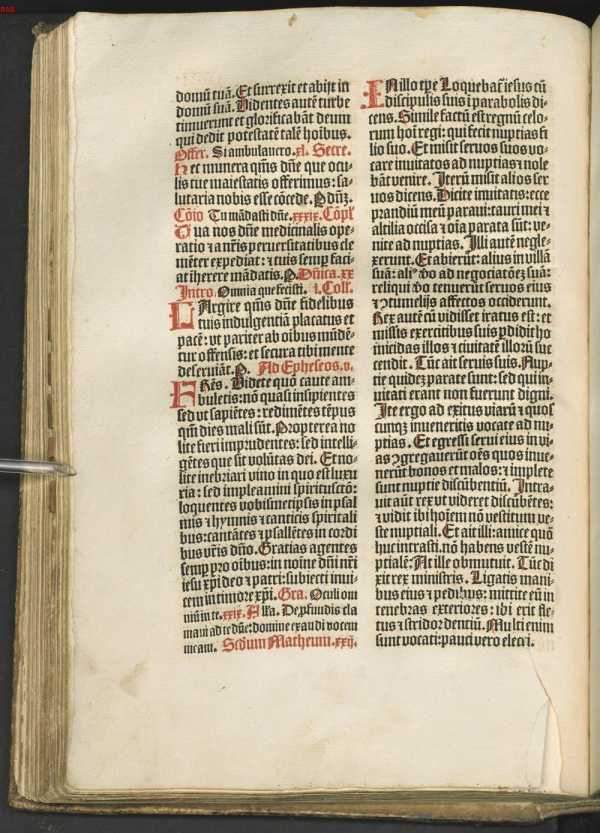 domū tuā. Et surrexit et abijt in
domū suā. Videntes autē turbe
timuerunt et glorificabāt deum
qui dedit potestatē talē hoībus.
Offer. Si ambulauero. xl. Secre.
Hec munera qm̄s dn̄e que ocu-
lis tue maiestatis offerimus: sa-
lutaria nobis esse cōcede. P dn̄ꝫ.
Cōio Tu mādasti dn̄e. xxxix. Cōpl'
Tua nos dn̄e medicinalis ope-
ratio ⁊ a nr̄is peruersitatibus cle
mēter expediat: ⁊ tuis semꝑ faci-
at iherere mādatis. P. Dn̄ica. xx
Intro. Omnia que fecisti. l. Coll'.
LArgire qm̄s dn̄e fidelibus
tuis indulgentiā placatus et
pacē: vt pariter ab oibus mūdē-
tur offensis: et secura tibi mente
deseruiāt. P. Ad Epheseos. v.
FRēs. Videte quō caute am-
buletis: nō quasi insipientes
sed vt sapiētes: redimētes tēpus
qm̄ dies mali sūt. Propterea no
lite fieri imprudentes: sed intelli-
gētes que sit volūtas dei. Et no-
lite inebriari vino in quo est luxu
ria: sed impleamini spiritusctō:
loquentes vobismetipsis in psal
mis ⁊ hymnis ⁊ canticis spiritali
bus: cantātes ⁊ psallētes in cordi
bus vr̄is dn̄o. Gratias agentes
semꝑ pro oibus: in noīne dn̄i nr̄i
iesu xp̄i deo ⁊ patri: subiecti inui-
cem in timore xp̄i. Gra. Oculi om
niū in te. xxix. Alla. De ꝓfundis cla
maui ad te dn̄e: domine exaudi vocem
meam. Scdūm Matheum. xxij.
IN illo tꝑe Loquebat̄ iesus cū
discipulis suis ī parabolis di-
cens. Simile factū est regnū celo-
rum hoī regi: qui fecit nuptias fi
lio suo. Et misit seruos suos vo-
care inuitatos ad nuptias ⁊ nole
bāt venire. Iterū misit alios ser
uos dicens. Dicite inuitatis: ecce
prandiū meū paraui: tauri mei ⁊
altilia occisa ⁊ oīa parata sūt: ve-
nite ad nuptias. Illi autē negle-
xerunt. Et abierūt: alius in villā
suā: aliꝰ vo ad negociatōeꝫ suā:
reliqui vo tenuerūt seruos eius
⁊ ꝯtumelijs affectos occiderunt.
Rex autē cū vidisset iratus est: et
missis exercitibus suis ꝑdidit ho
micidas illos ⁊ ciuitatē illorū suc
cendit. Tūc ait seruis suis. Nup-
tie quideꝫ parate sunt: sed qui in-
uitati erant non fuerunt digni.
Ite ergo ad exitus viarū ⁊ quos
cunqꝫ inueneritis vocate ad nu-
ptias. Et egressi serui eius in vi-
as ꝯgregauerūt oēs quos inue-
nerūt bonos et malos: ⁊ implete
sunt nuptie discūbentiū. Intra-
uit aūt rex vt videret discūbētes:
⁊ vidit ibi hoīem nō vestitum ve-
ste nuptiali. Et ait illi: amice quō
huc intrasti. nō habens vestē nu-
ptialē: At ille obmutuit. Tūc di
xit rex ministris. Ligatis mani-
bus eius ⁊ pedibus: mittite eū in
tenebras exteriores: ibi erit fle-
tus ⁊ stridor dentiū. Multi enim
sunt vocati: pauci vero electi.